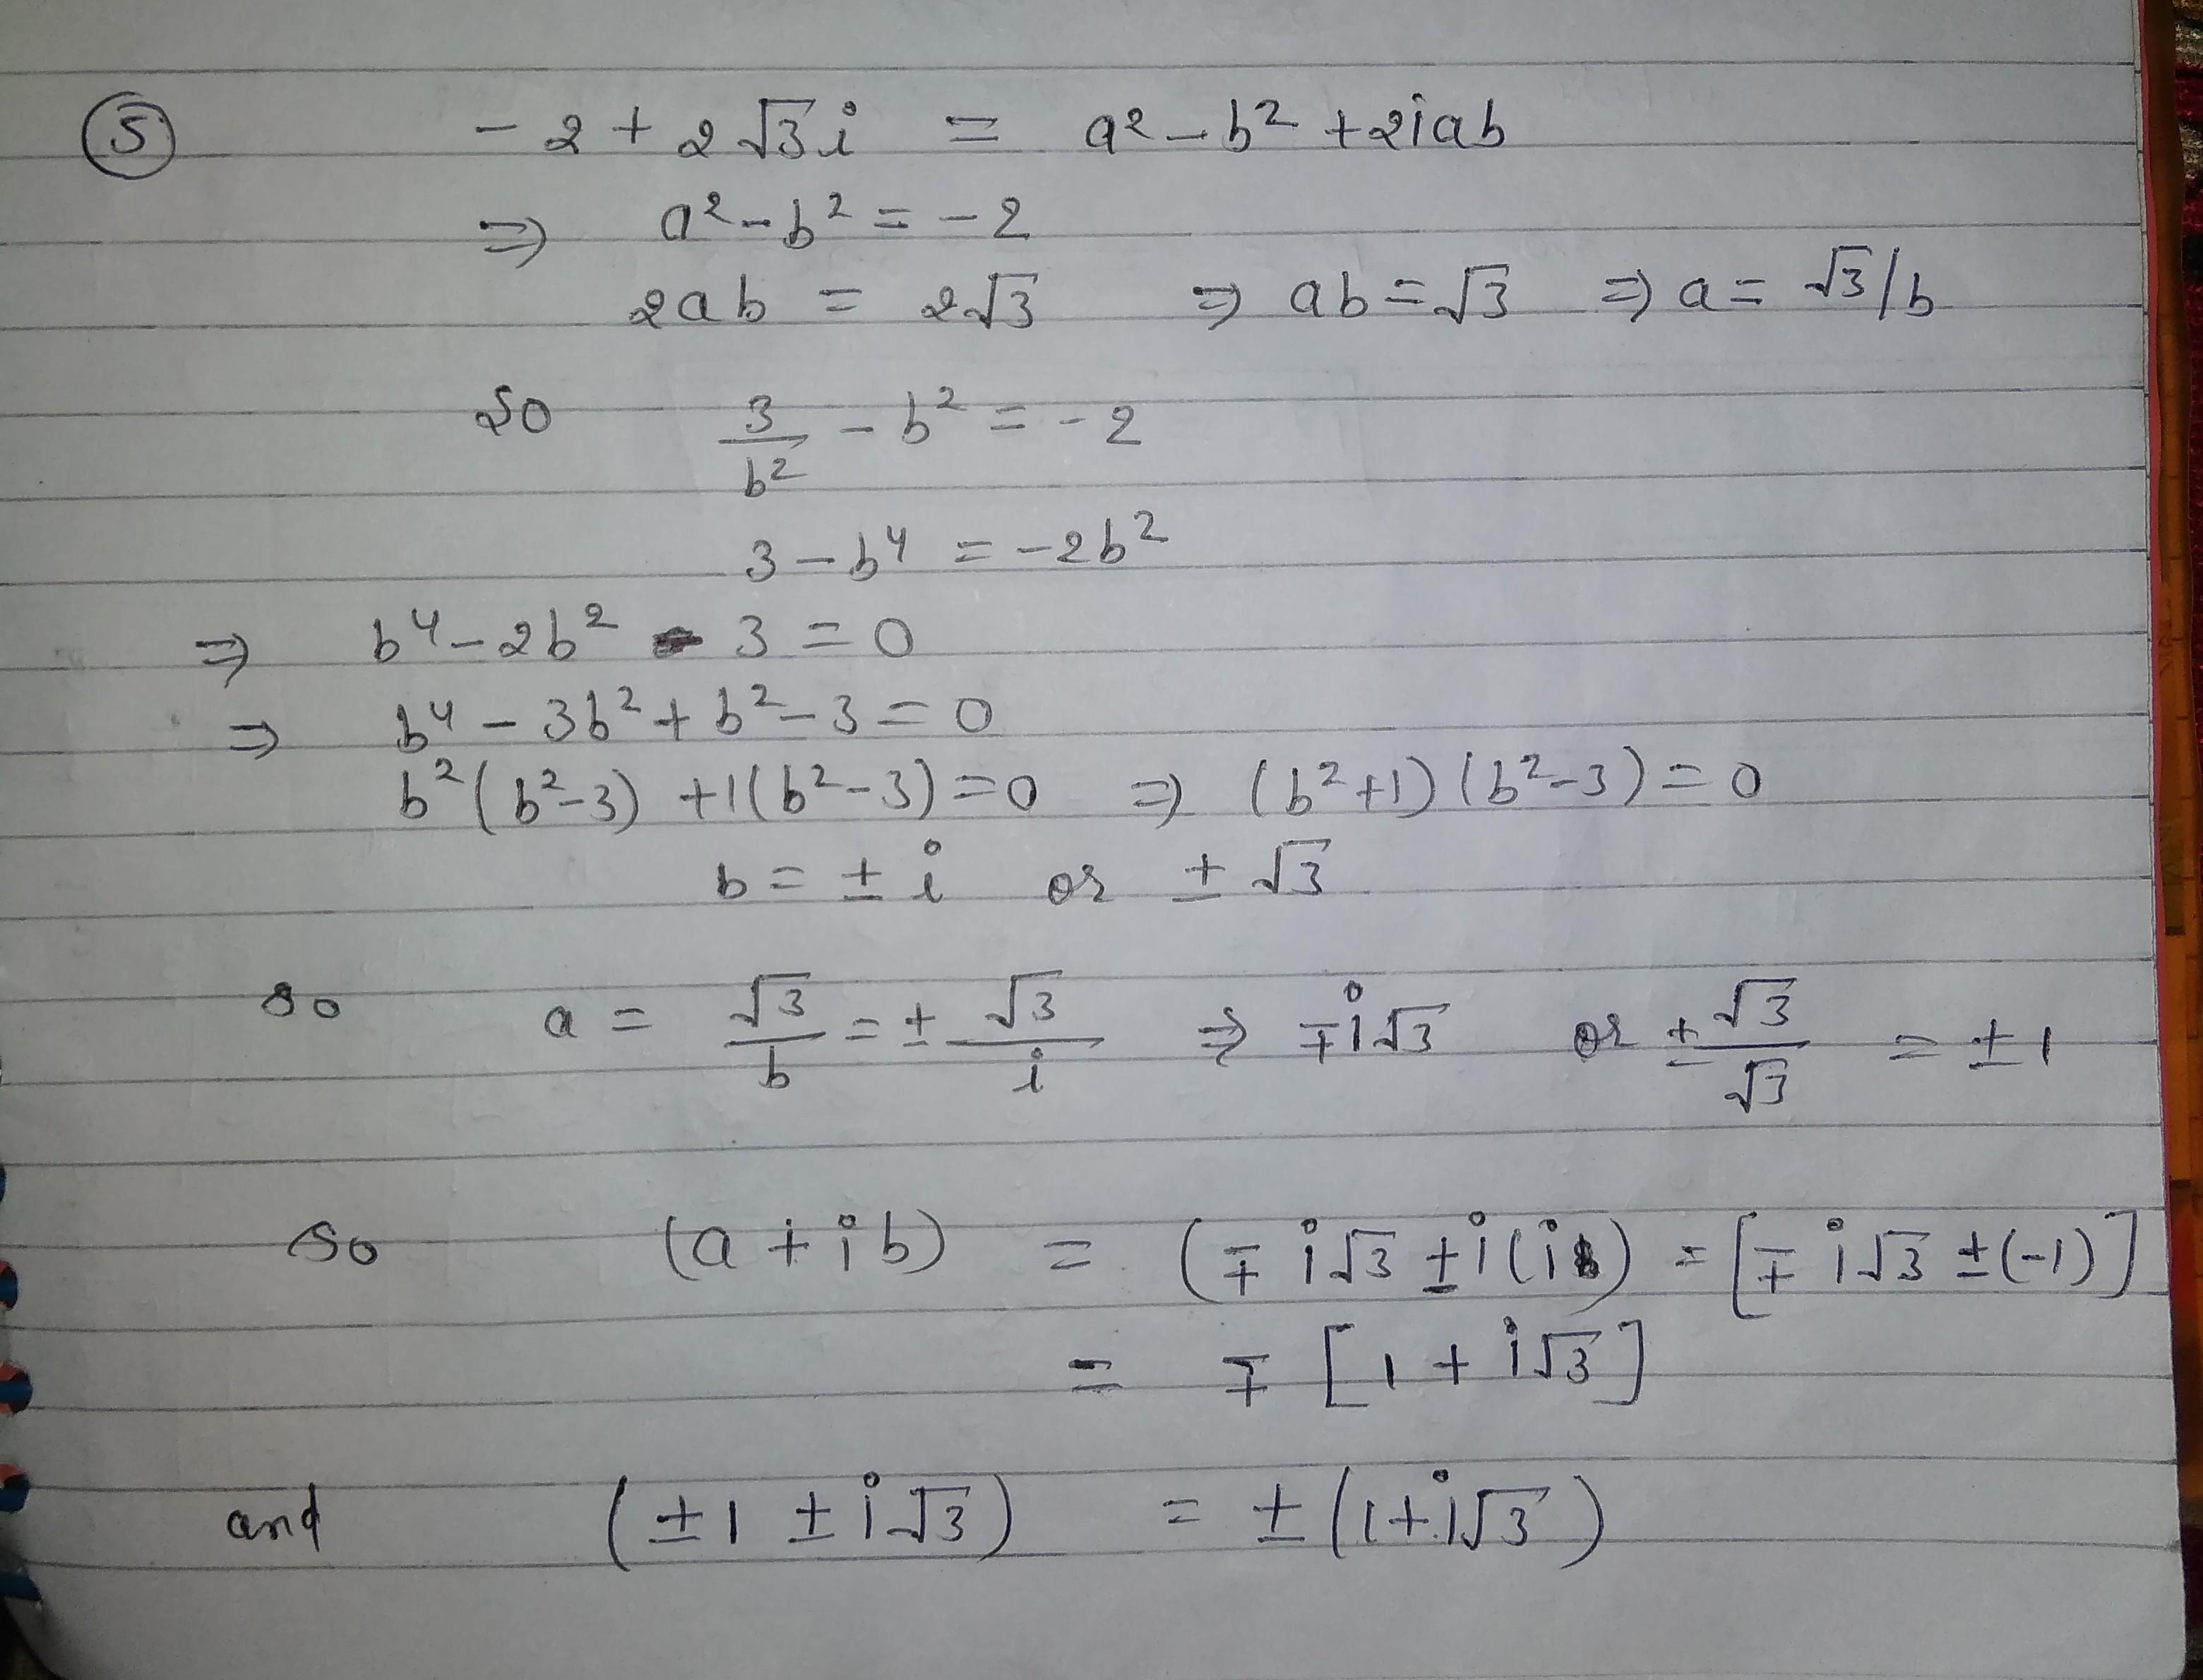 ⑤ - 2 + 2√3 i = a² - b² + 2iab
⇒ a² - b² = - 2
2ab = 2√3 ⇒ ab = √3 ⇒ a = √3/b
So 3/b² - b² = - 2
3 - b⁴ = - 2b²
⇒ b⁴ - 2b² - 3 = 0
⇒ b⁴ - 3b² + b² - 3 = 0
b² (b² - 3) + 1(b² - 3) = 0 ⇒ (b² + 1) (b² - 3) = 0
b = ± i or ± √3
so a = √3/b = ± √3/i ⇒ ∓ i√3 or ± √3/√3 = ± 1
So (a + i b) = (∓ i√3 ± i(i) = [∓ i√3 ± (-1)]
= ∓ [1 + i√3]
and (± 1 ± i√3) = ± (1 + i√3)